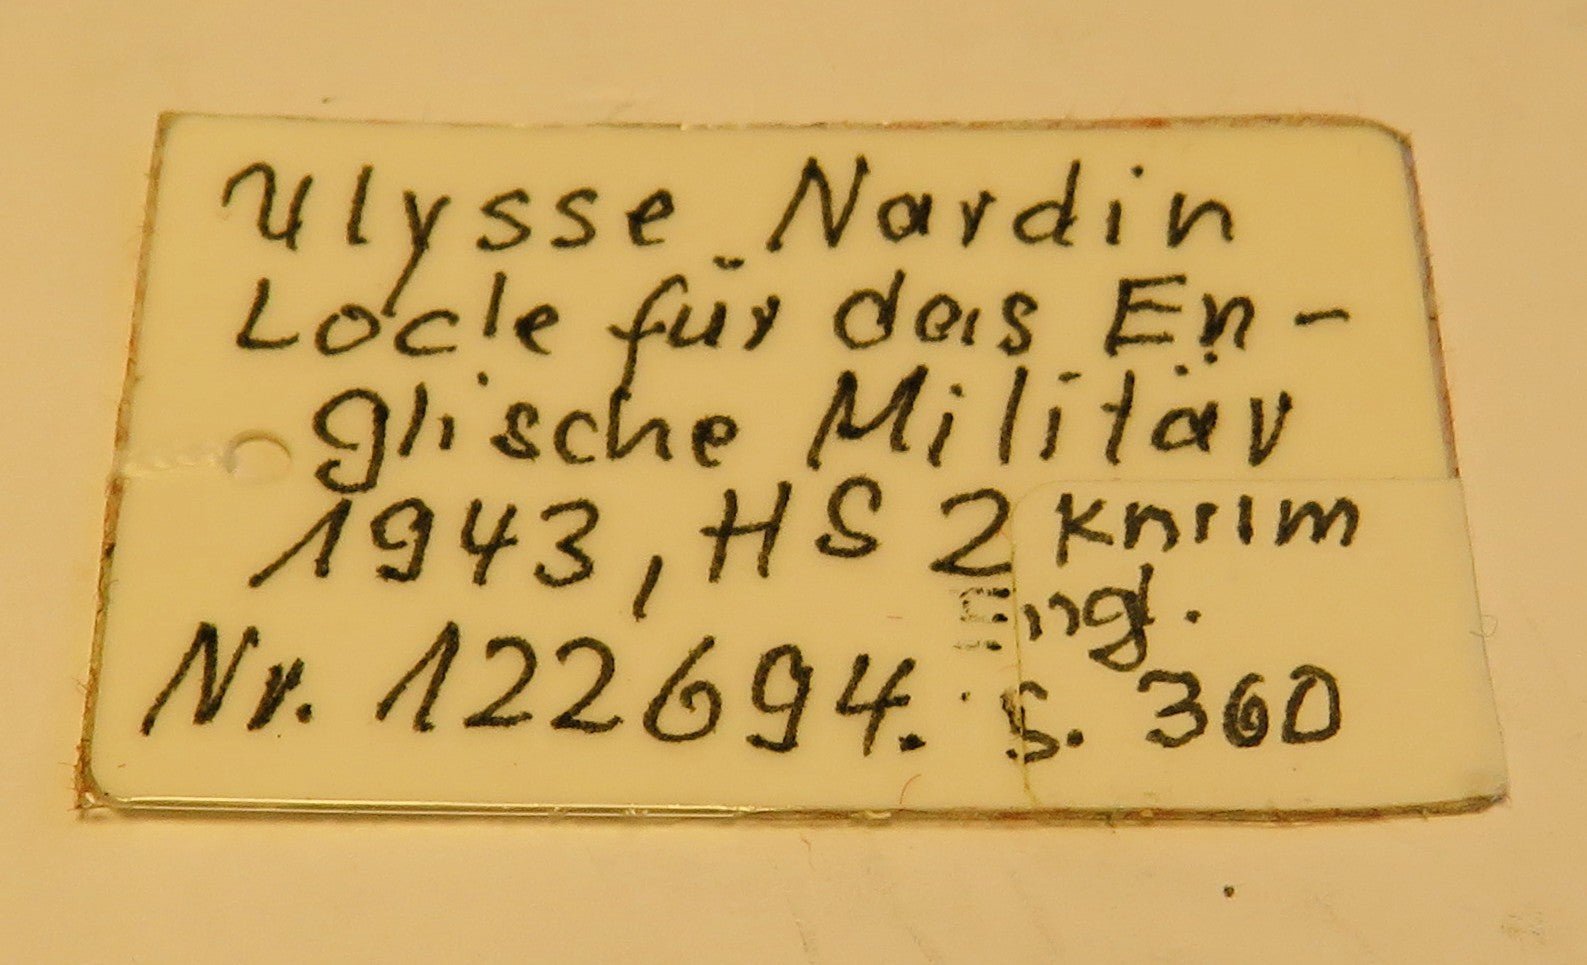 Ulysse Nardin
Locle für das En-
glische Militär
1943, HS 2 Knirim
ngl.
Nr. 122694. S. 360